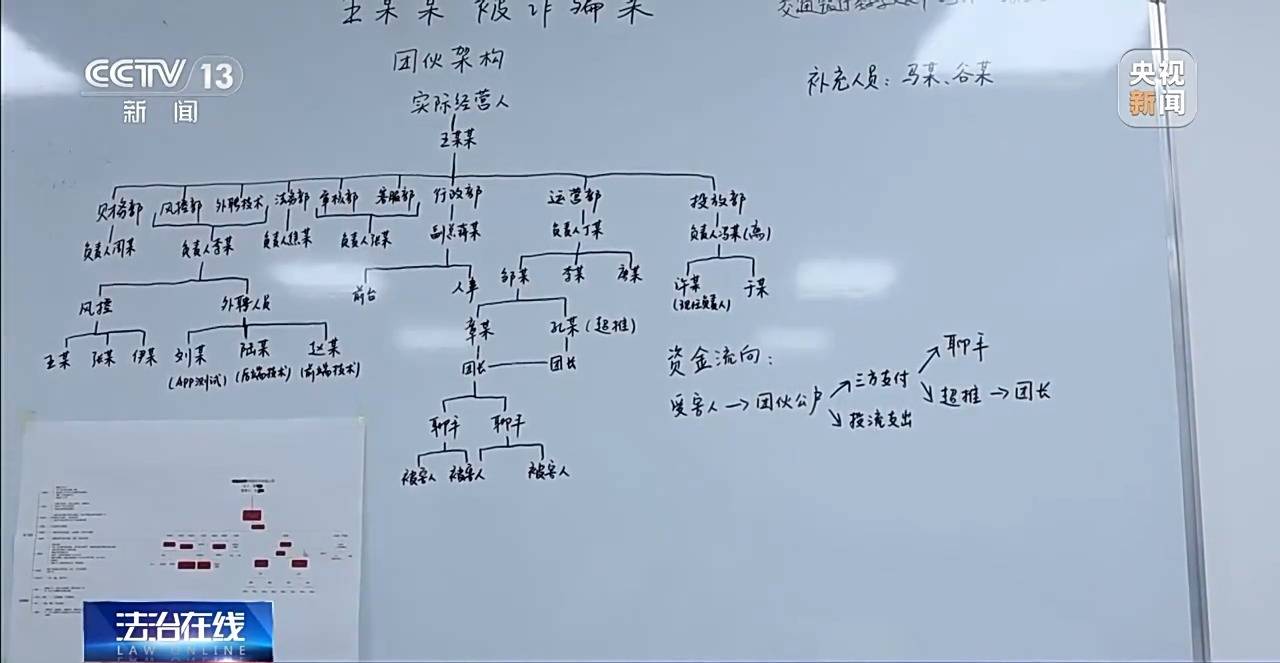 王某某被诈骗案
CCTV 13
新闻
央视
新闻
团伙架构
补充人员：马某、谷某
实际经营人
王某某
财务部 风控部 外聘技术 法务部 审核部 客服部 行政部 运营部 投放部
负责人周某 负责人李某 负责人焦某 负责人张某 副总蒋某 负责人丁某 负责人冯某(离)
风控 外聘人员 前台 人事 邹某 李某 唐某 许某 于某
(现任负责人)
章某 孔某(超推)
王某 张某 伊某 刘某 陆某 赵某
(APP测试) (后端技术) (前端技术)
团长 团长
聊手 聊手
被害人 被害人 被害人
资金流向：
受害人→团伙公户 ↗三方支付 ↗聊手
↘投流支出 ↘超推→团长
法治在线
LAW ONLINE